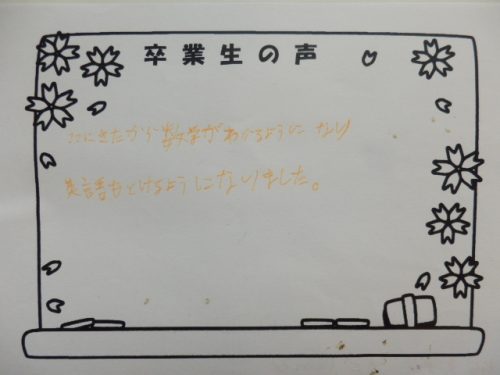 卒業生の声
ここにきたから数学がわかるようになり
英語もとけるようになりました。